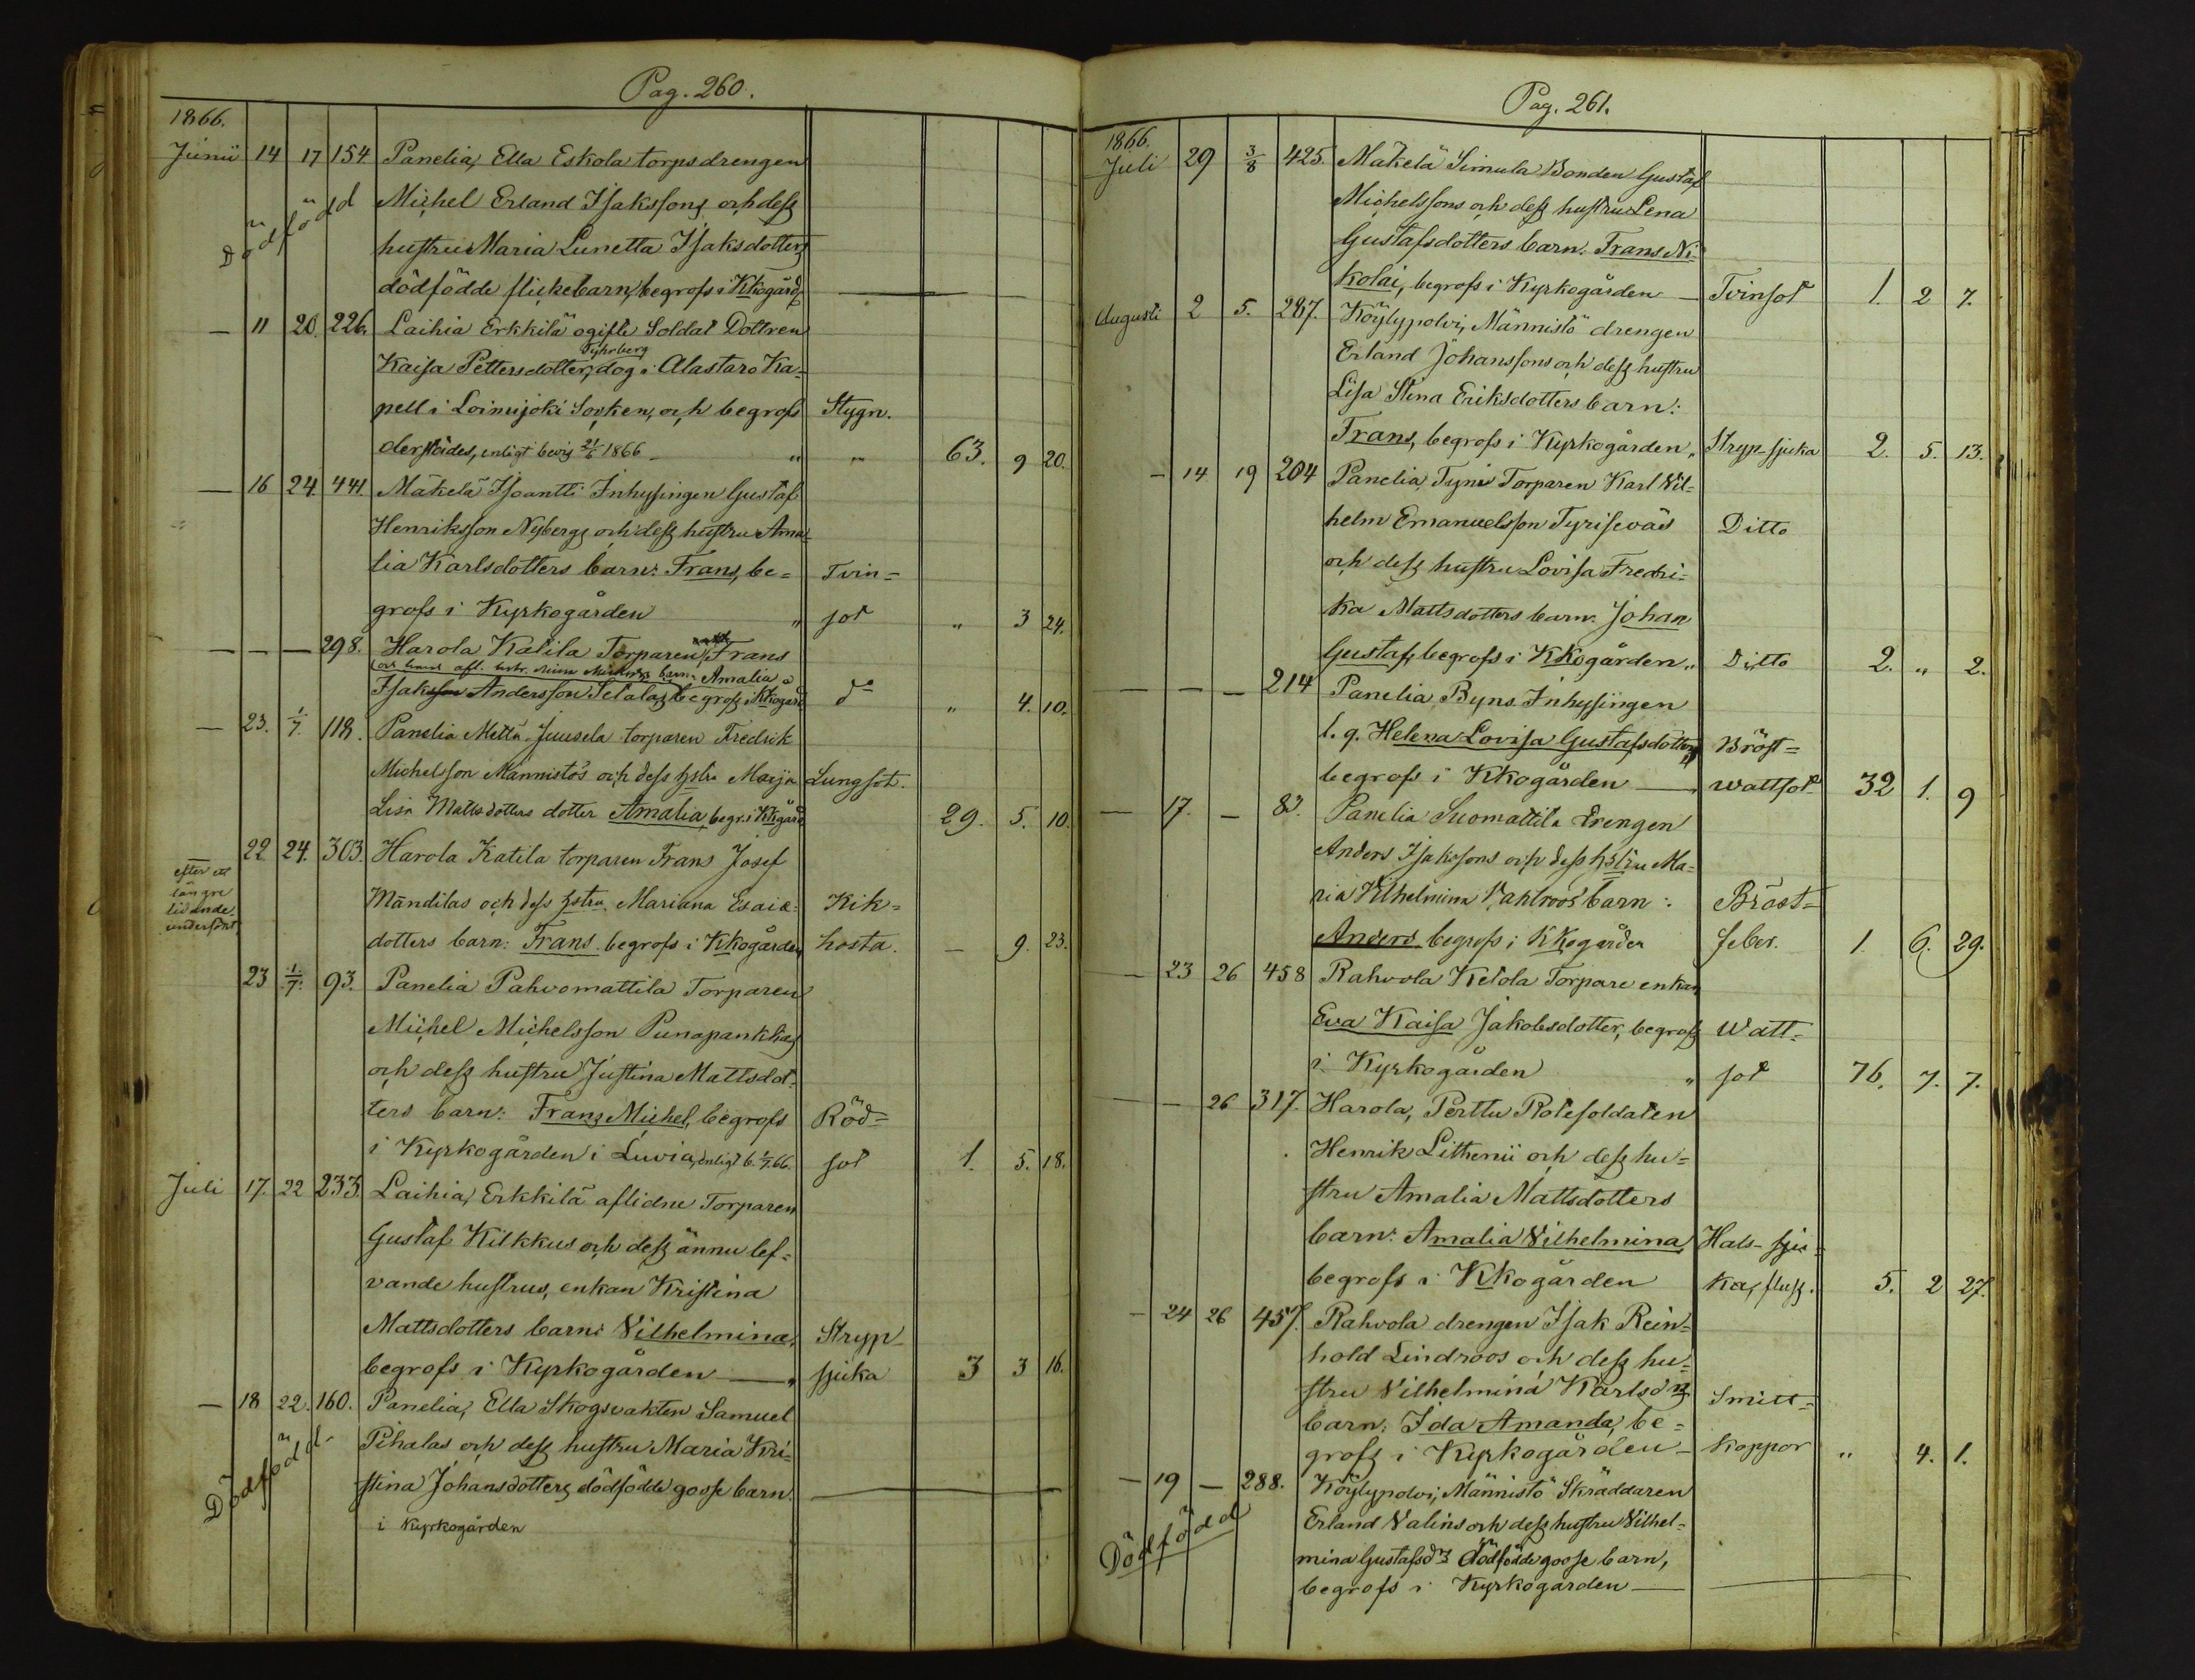 Pag. 260.
1866.
Junii 14 17 154 Panelia, Ella Eskola torpsdrengen
Michel Erland Isakssons och dess
Dödfödd
hustru Maria Lunetta Isaksdotters
dödfödde flickebarn, begrofs i Kkogård.
— 11 20. 226. Laihia Erkkilä ogifte Soldat Dottren
Tyhrberg
Kaisa Pettersdotter, dog i Alastaro Ka-
pell i Loimijoki Socken, och begrofs Stygn.
derstädes, enligt bevis 21/6 1866 " " 63. 9 20.
— 16 24. 441. Mäkelä Isoantti Inhysingen Gustaf
Henriksson Nybergs och dess hustru Ama-
lia Karlsdotters barn: Frans, be- Tvin-
grofs i Kyrkogården " sot " 3 24.
— — — 298. Harola Katila Torparen Frans
Isaksson Andersson Setalas begrofs i Kkogård d:o " 4. 10.
— 23. 1/7. 118. Panelia Mettä-Juusela torparen Fredrik
Michelsson Männistös och dess hstru Maija Lungsot.
Lisa Mattsdotters dotter Amalia, begr. i Kkgård 29. 5. 10.
22 24. 303. Harola Katila torparen Frans Josef
efter et
längre
lidande
Mandilas och dess hstru Mariana Esaiæ- Kik-
dotters barn: Frans begrofs i Kkogården hosta. — 9. 23.
23 1/7. 93. Panelia Pahvomattila Torparen
Michel Michelsson Punapankkas
och dess hustru Justina Mattsdot-
ters barn: Frans Michel, begrofs Röd-
i Kyrkogården i Luvia, enligt b. 1/7.66. sot 1. 5. 18.
Juli 17. 22 233. Laihia, Erkkilä aflidne Torparen
Gustaf Kilkkus och dess ännu lef-
vande hustrus, enkan Kristina
Mattsdotters barn: Vilhelmina, Stryp-
begrofs i Kyrkogården — sjuka 3 3 16.
— 18 22. 160. Panelia, Ella Skogsvakten Samuel
Dödfödd
Pihalas och dess hustru Maria Kri-
stina Johansdotters dödfödde gosse barn.
i Kyrkogården
Pag. 261.
1866.
Juli 29 3/8 425. Mäkelä Simula Bonden Gustaf
Michelssons och dess hustru Lena
Gustafsdotters barn: Frans Ni-
kolai, begrofs i Kyrkogården — Tvinsot 1. 2 7.
Augusti 2 5. 287. Köylypolvi, Männistö drengen
Erland Johanssons och dess hustru
Lisa Stina Eriksdotters barn:
Frans, begrofs i Kyrkogården " Stryp-sjuka 2. 5. 13.
— 14 19 204 Panelia, Tyni Torparen Karl Vil-
helm Emanuelsson Tyriseväs Ditto
och dess hustru Lovisa Fredri-
ka Mattsdotters barn: Johan
Gustaf, begrofs i Kkogården " Ditto 2. " 2.
— — — 214 Panelia, Byns Inhysingen
l. q. Helena Lovisa Gustafsdotter, Bröst-
begrofs i Kkogården — wattsot 32 1. 9
— 17. — 83. Panelia Suomattila Drengen
Anders Isakssons och dess hstru Ma-
ria Vilhelmina Vahlroos barn: Bröst-
Anders begrofs i Kkogården feber. 1. 6. 29.
— 23 26 458 Rahvola Ketola Torpare enkan
Eva Kaisa Jakobsdotter, begrofs Watt-
i Kyrkogården " sot 76. 7. 7.
— — 26 317. Harola, Perttu Rotesoldaten
Henrik Lithenii och dess hu-
stru Amalia Mattsdotters
barn: Amalia Vilhelmina, Hals-sju-
begrofs i Kkogården ka, fluss. 5. 2 27.
— 24 26 457. Rahvola drengen Isak Rein-
hold Lindroos och dess hu-
stru Vilhelmina Karlsd:rs Smitt-
barn: Ida Amanda, be-
grofs i Kyrkogården — koppor " 4. 1.
— 19 — 288. Köylypolvi, Männistö Skräddaren
Dödfödd
Erland Valins och dess hustru Vilhel-
mina Gustafsd:rs dödfödde gosse barn,
begrofs i Kyrkogården —